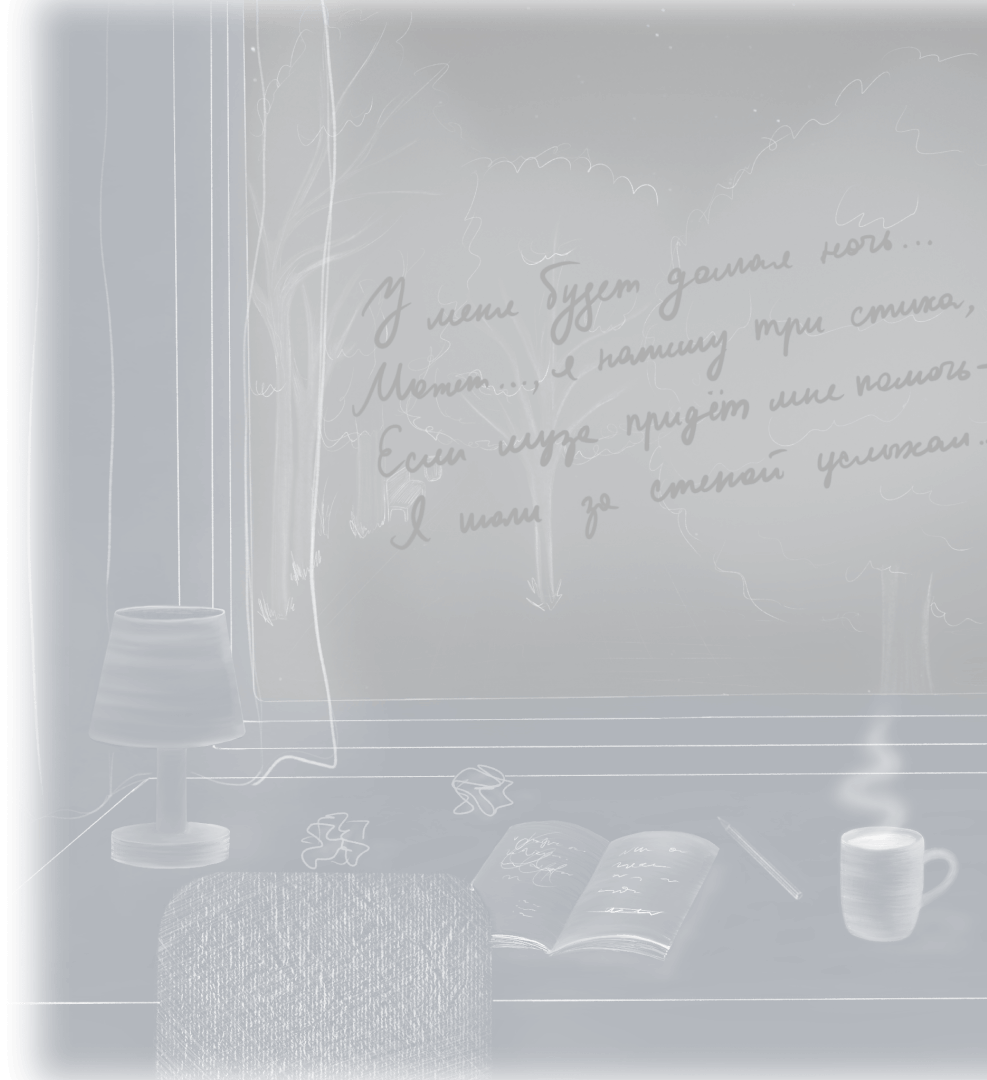 У меня будет долгая ночь...
Может..., я напишу три стиха,
Если муза придёт мне помочь-
Я шаги за стеной услыхал..